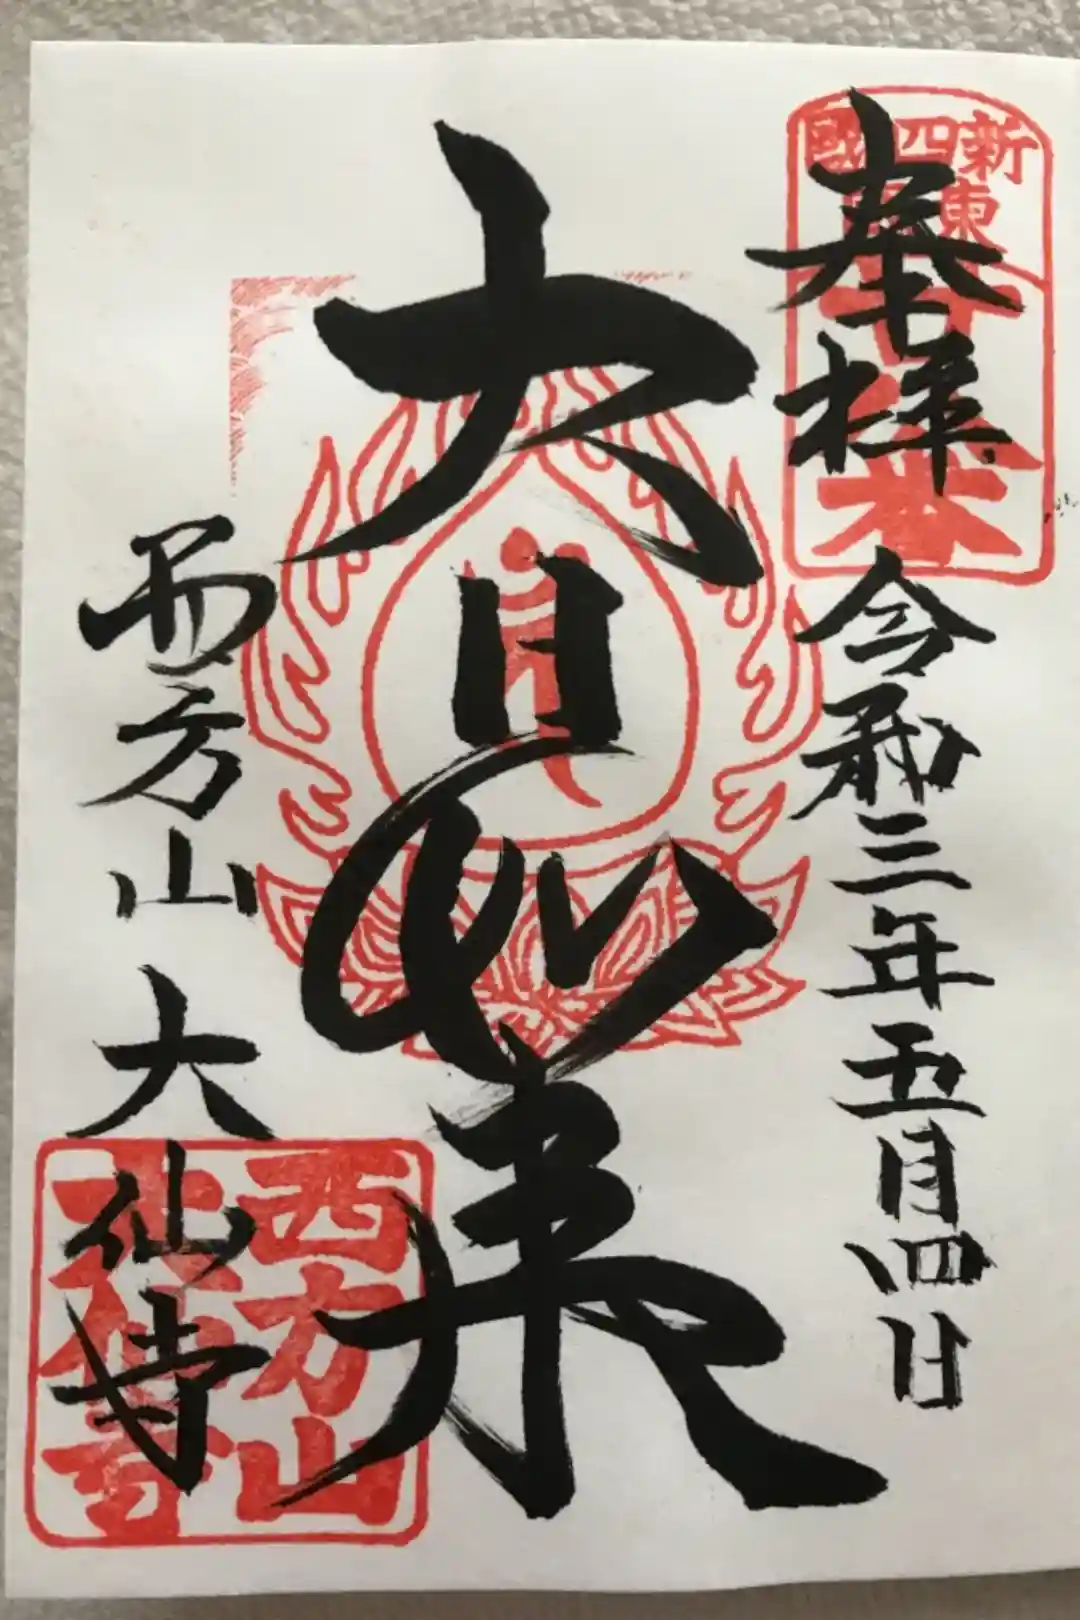 奉拝
令和三年五月四日
大日如来
西方山 大仙寺
新四國
東
番
西方山
大仙寺